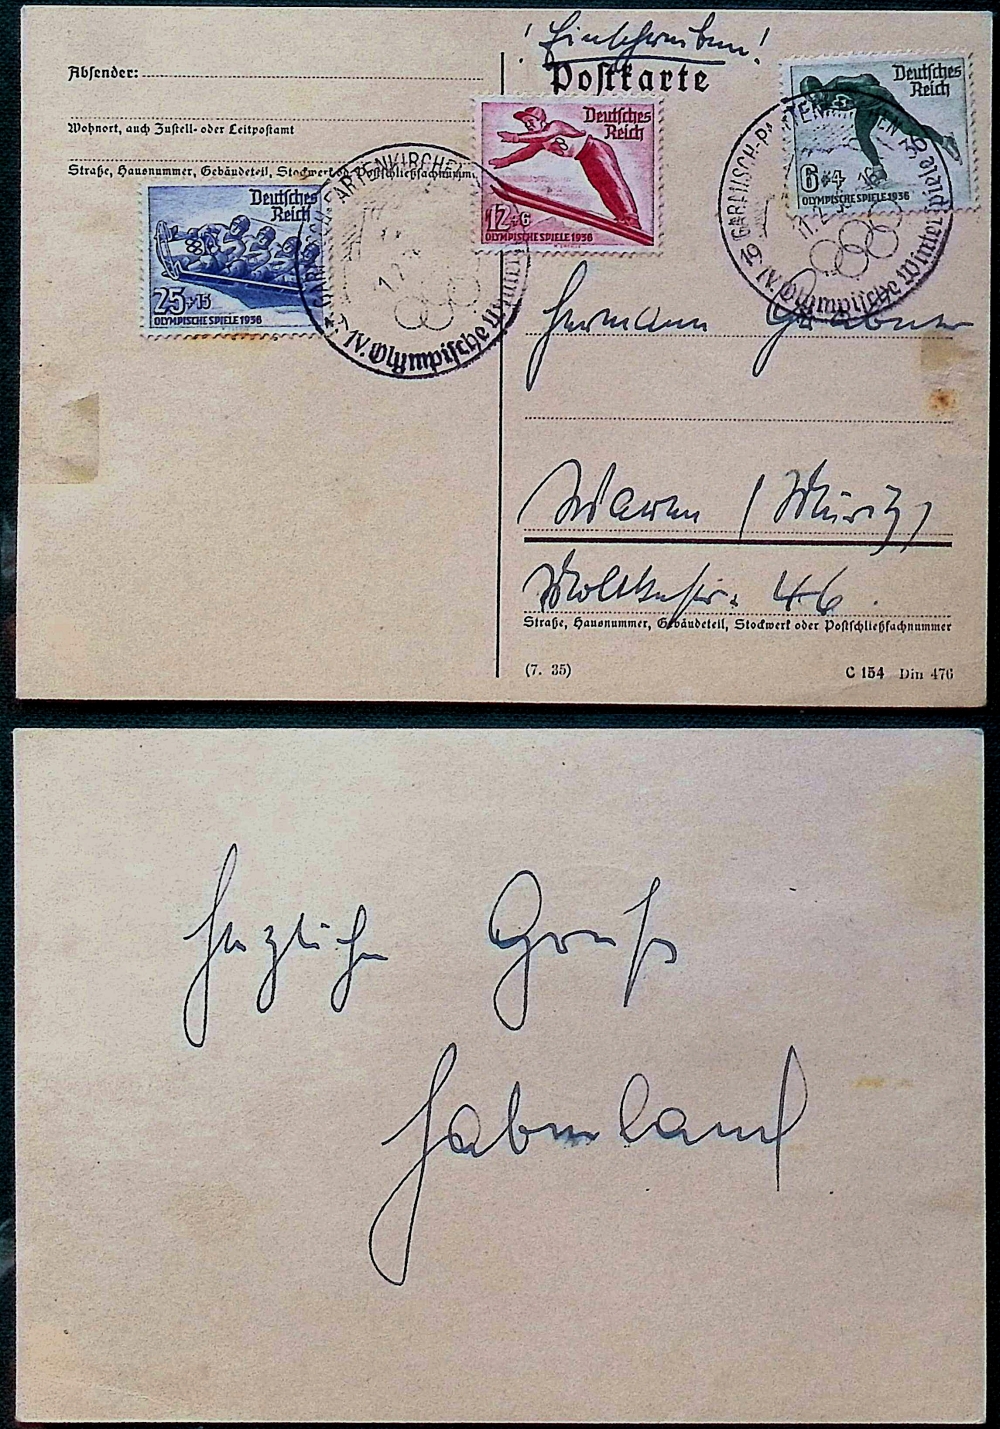 ! Einschreiben !
Postkarte
Absender:
Wohnort, auch Zustell- oder Leitpostamt
Straße, Hausnummer, Gebäudeteil, Stockwerk od. Postschließfachnumm.
Deutsches
Reich
25+15
OLYMPISCHE SPIELE 1936
GARMISCH-PARTENKIRCHEN
IV. Olympische Winter
Deutsches
Reich
12+6
OLYMPISCHE SPIELE 1936
Deutsches
Reich
6+4
OLYMPISCHE SPIELE 1936
GARMISCH-PARTENKIRCHEN
11.2.36
IV. Olympische Winterspiele
Hermann
Waren (Müritz)
Moltkestr. 46.
Straße, Hausnummer, Gebäudeteil, Stockwerk oder Postschließfachnummer
(7. 35)
C 154 Din 476
Herzlichen Gruß
Haberland